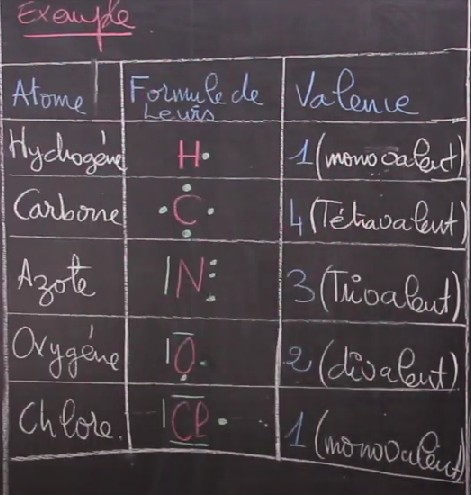 Exemple
Atome Formule de Leuris Valence
Hydrogène H 1 (monovalent)
Carbone C 4 (Tétravalent)
Azote N 3 (Trivalent)
Oxygène O 2 (divalent)
Chlore. Cl 1 (monovalent)